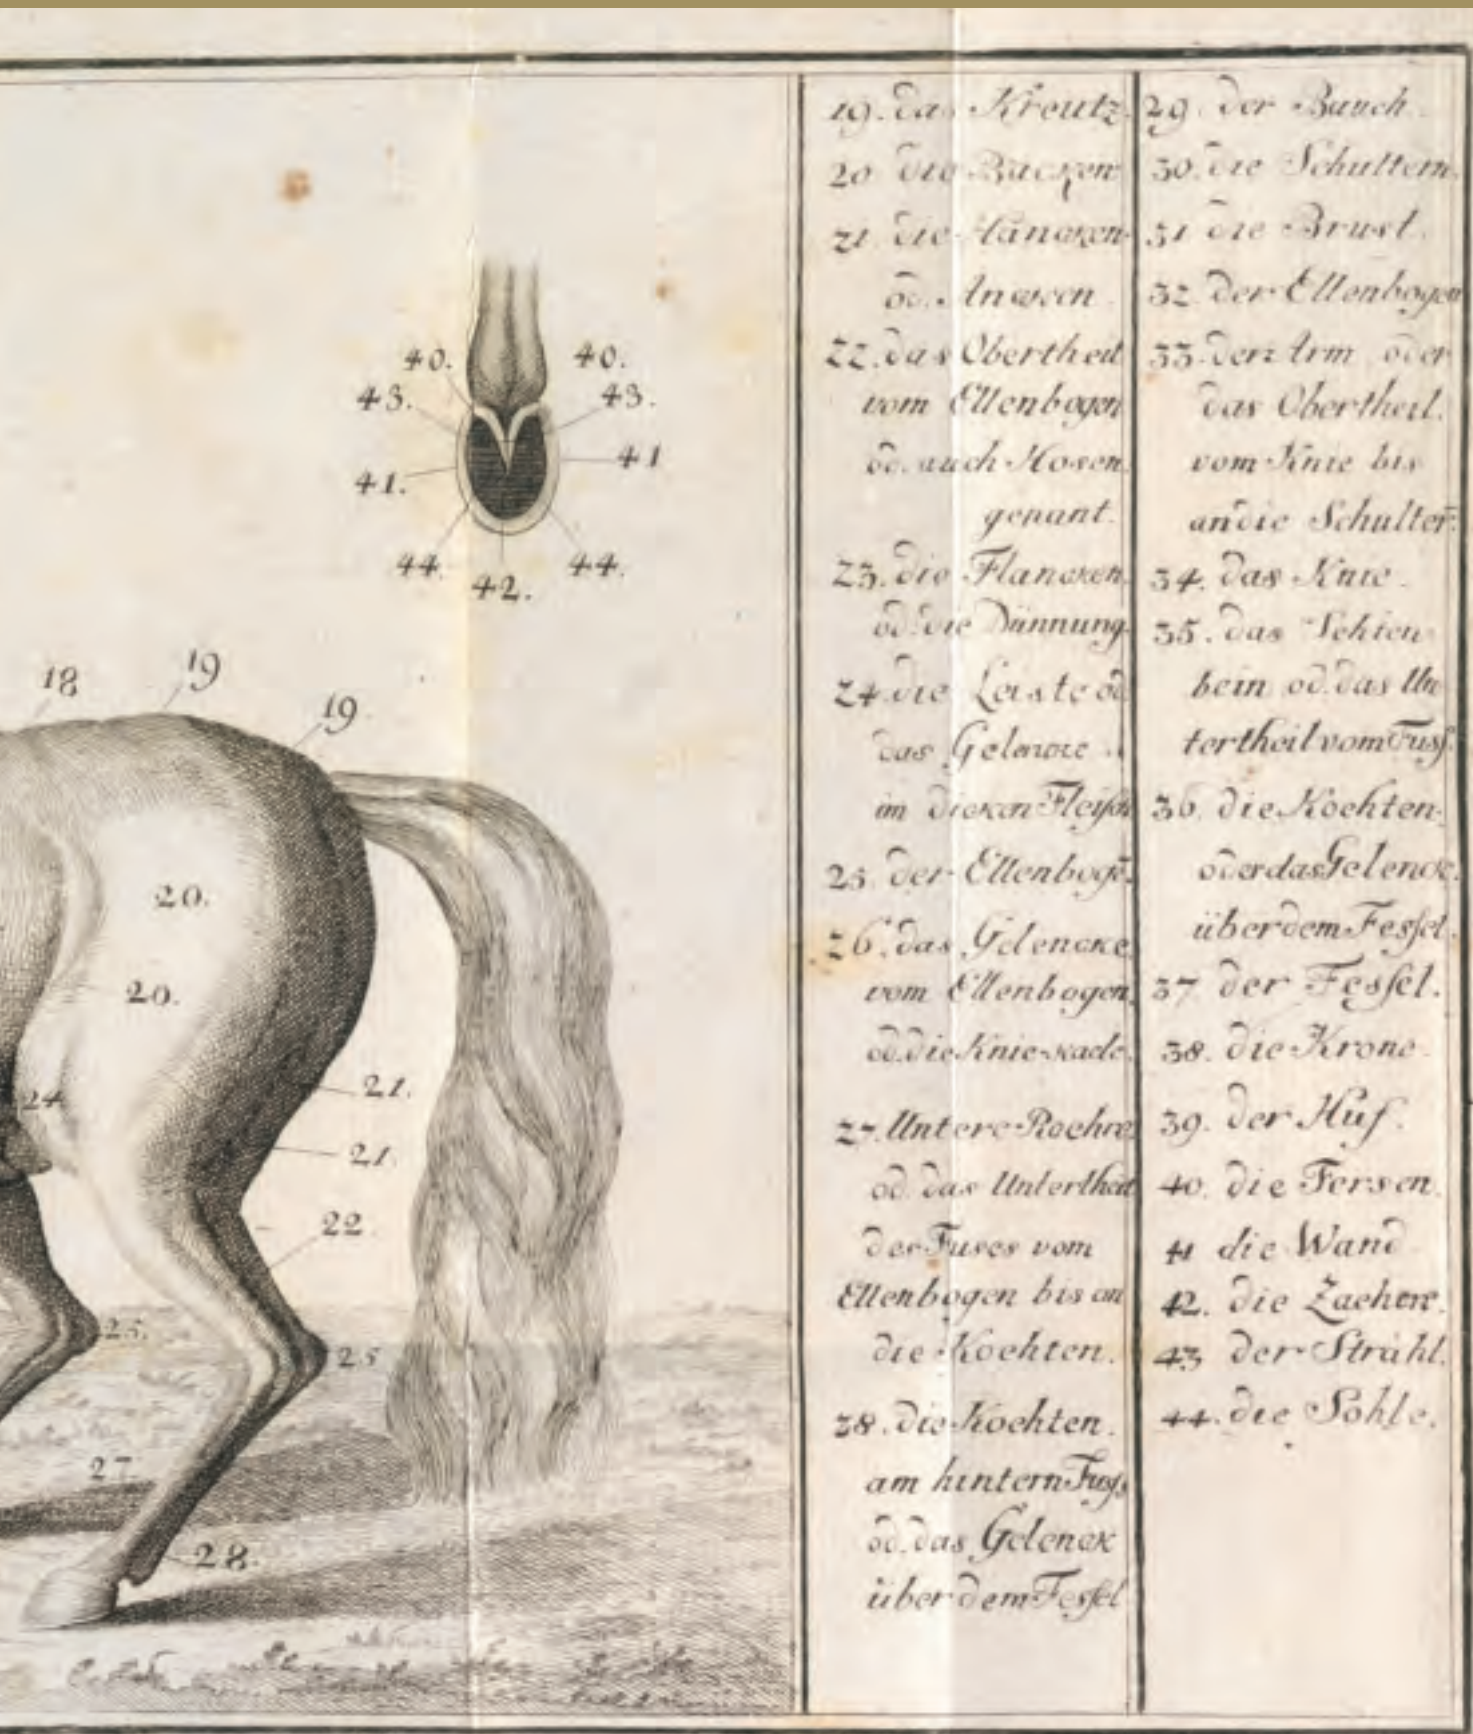 40.
40.
43.
43.
41
41.
44
44.
42.
18
19
19
20.
20.
21.
24
21.
22
25.
25
27
28.
19. das Kreutz.
20 die Backen
21. die Hancken
od. Ancken
22. das Obertheil
vom Ellenbogen
od. auch Hosen
genant.
23. die Flancken.
od. die Dünnung.
24. die Leiste od
das Gelencke
im dicken Fleisch
25. der Ellenbogē.
26. das Gelencke
vom Ellenbogen,
od. die Kniescade.
27. Untere Roehre
od. das Untertheil
des Fuses vom
Ellenbogen bis an
die Koehten.
28. die Koehten.
am hintern Fuss
od. das Gelenck
über dem Fessel
29. der Bauch.
30. die Schultern.
31 die Brust.
32. der Ellenbogen
33. der Arm oder
das Obertheil.
vom Knie bis
an die Schulter.
34. das Knie.
35. das Schien
bein od. das Un
tertheil vom Fuss.
36. die Koehten.
oder das Gelenck.
über dem Fessel.
37 der Fessel.
38. die Krone.
39. der Huf.
40. die Fersen.
41 die Wand
42. die Zaehen.
43 der Strahl.
44. die Sohle.